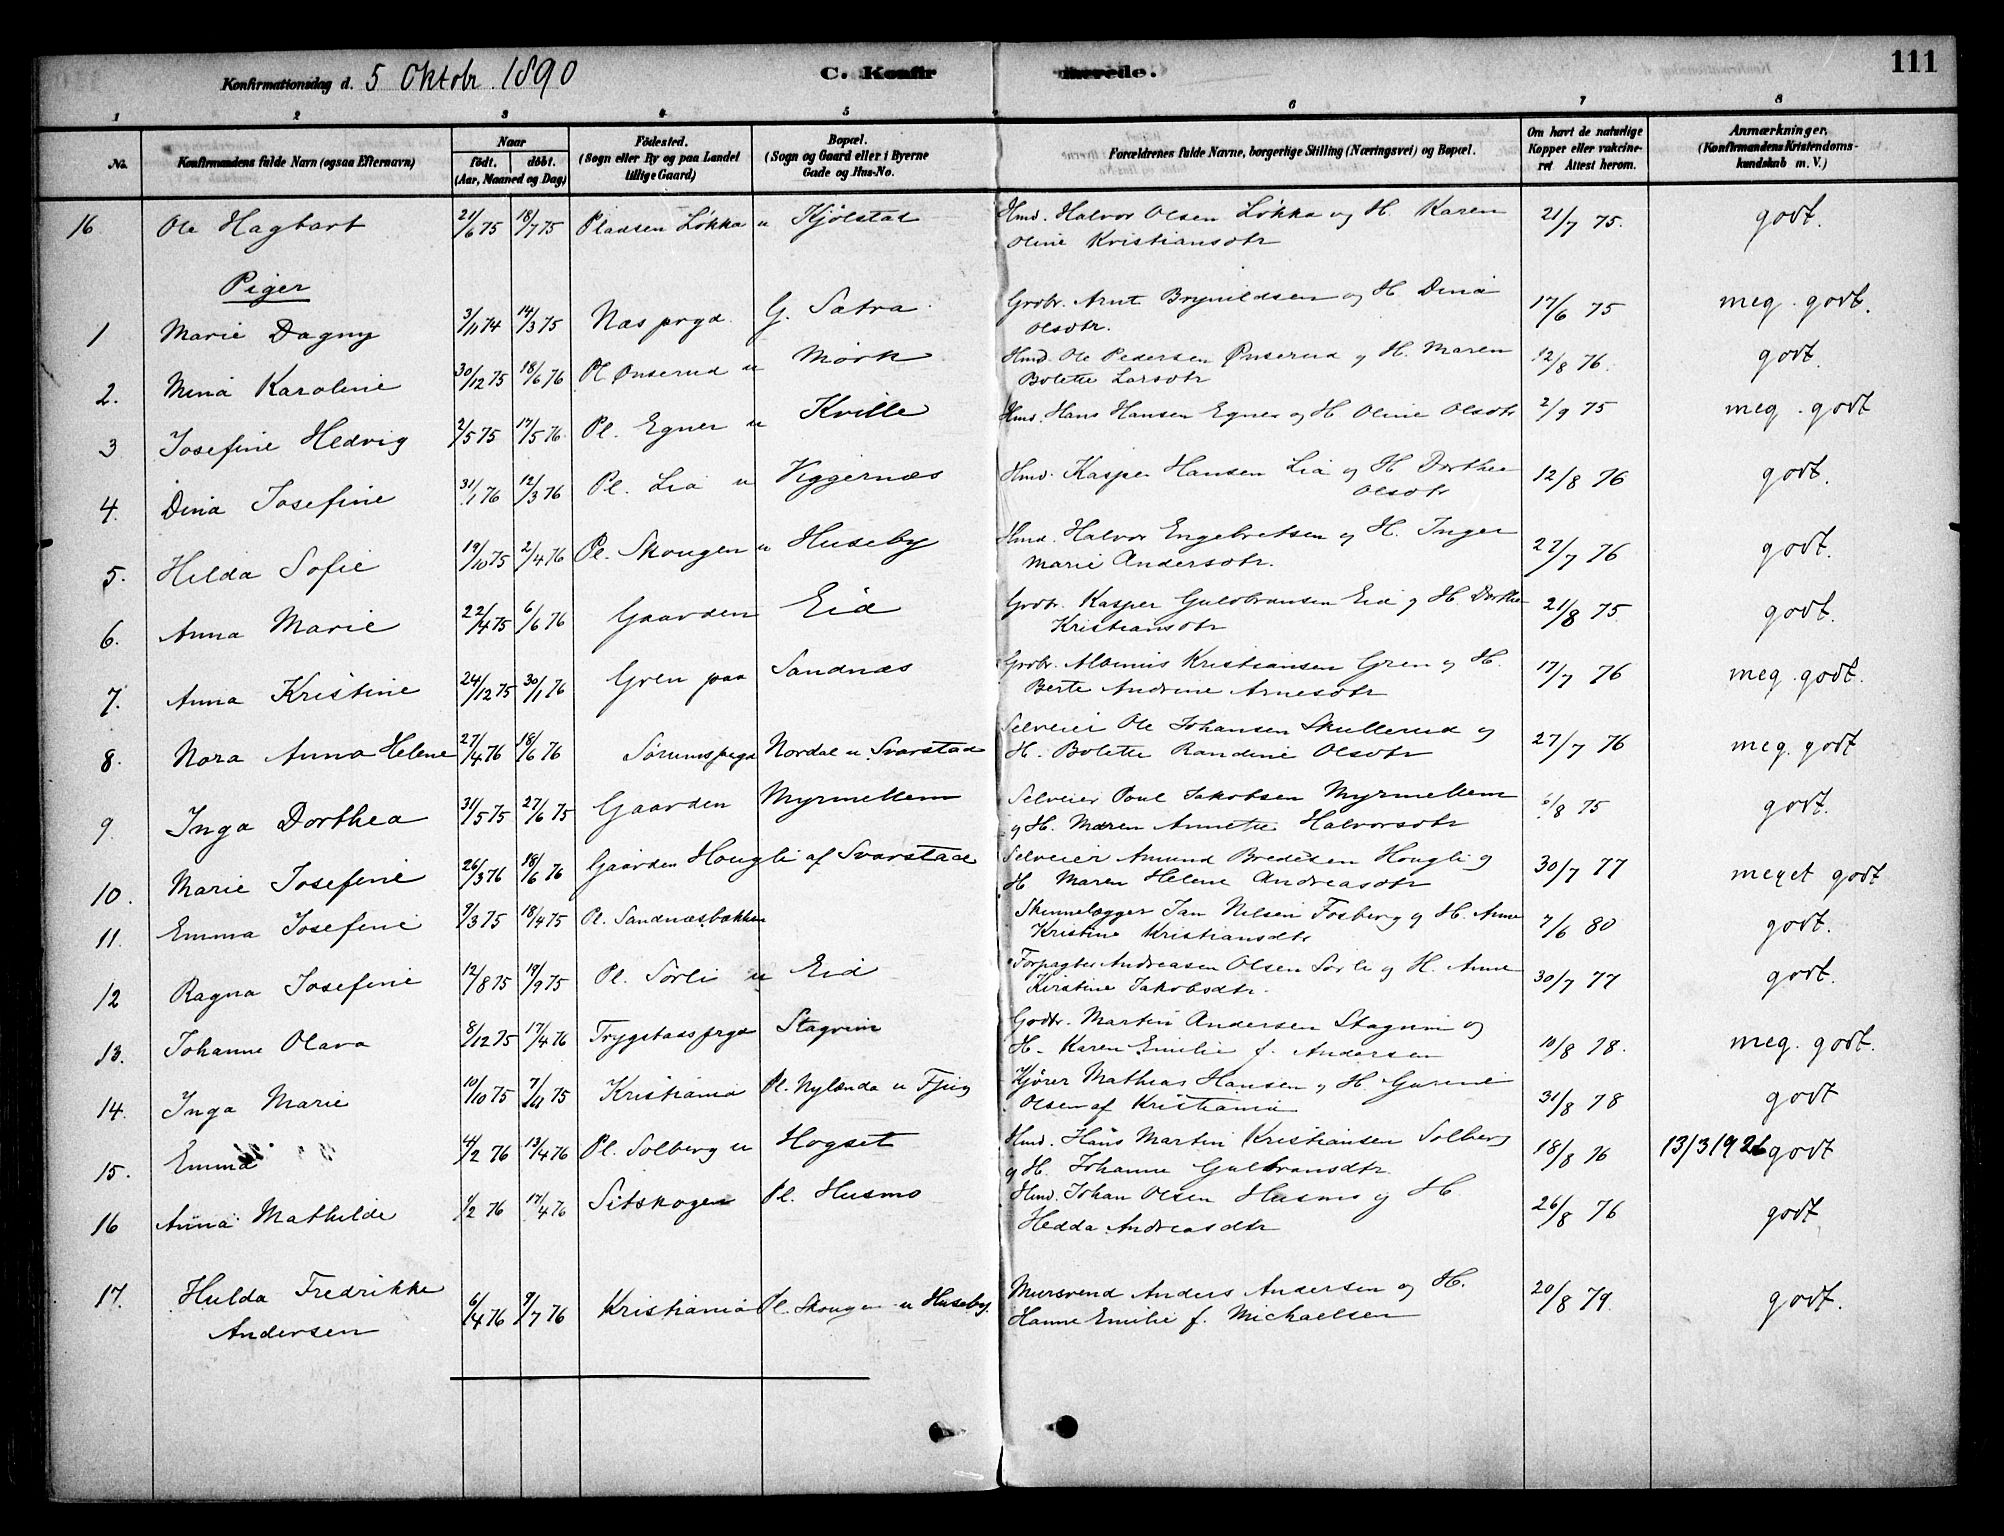 111
Konfirmationsdag d. 5 Oktobr. 1890
C. Konfir merede.
1 2 3 4 5 6 7 8
No.
Konfirmandens fulde Navn (ogsaa Efternavn)
Naar
født. døbt.
(Aar, Maaned og Dag)
Fødested.
(Sogn eller By og paa Landet
tillige Gaard)
Bopæl.
(Sogn og Gaard eller i Byerne
Gade og Hus-No.
Forældrenes fulde Navne, borgerlige Stilling (Næringsvei) og Bopæl.
Om havt de naturlige
Kopper eller vakcine-
ret Attest herom.
Anmærkninger,
(Konfirmandens Kristendoms-
kundskab m. V.)
16 Ole Hagbart 21/6 75 18/7 75 Pladsen Løkka u Kjølstad Hmd. Halvor Olsen Løkka og H. Karen 21/7 75. godt.
Oline Kristiansdtr
Piger
1 Marie Dagny 3/11 74 14/3 75 Næs prgd. G. Satra Grdbr. Arnt Brynildsen og H. Dina 17/6 75 meg. godt.
Olsdtr.
2. Mina Karoline 30/12 75 18/6 76 Pl Ønserud u Mørk Hmd. Ole Pedersen Ønserud og H. Maren 12/8 76. godt.
Bolette Larsdtr
3 Josefine Hedvig 2/5 75 17/5 76 Pl. Egner u Kville Hmd. Hans Hansen Egner og H Oline Olsdtr 2/9 75 meg. godt
4. Dina Josefine 31/1 76 12/3 76 Pl. Lia u Viggernæs Hmd. Kasper Hansen Lia og H Dorthea 12/8 76 godt.
Olsdtr
5. Hilda Sofie 19/10 75 2/4 76 Pl. Skougen u Huseby Hmd. Halvor Engebretsen og H. Inger 22/7 76 godt.
Marie Andersdtr.
6. Anna Marie 22/4 75 6/6 76 Gaarden Eid Grdbr. Kasper Guldbransen Eid og H. Dorthe 21/8 75. godt.
Kristiansdtr
7. Anna Kristine 24/12 75 30/1 76 Gren paa Sandnæs Grdbr. Albinus Kristiansen Gren og H. 17/7 76 meg. godt.
Berte Andrine Arnesdtr
8. Nora Anna Helene 27/4 76 18/6 76 Sørums prgd Nordal u Svarstad Selveier Ole Johansen Skullerud og 27/7 76 meg. godt
H. Bolette Randine Olsdtr
9. Inga Dorthea 31/5 75 27/6 75 Gaarden Myrmellem Selveier Poul Jakobsen Myrmellem 6/8 75 godt.
og H. Maren Annette Halvorsdtr
10. Marie Josefine 26/3 76 18/6 76 Gaarden Hougli af Svarstad Selveier Amund Bredesen Hougli og 30/7 77 meget godt
H Maren Helene Andreasdtr
11. Emma Josefine 9/3 75 18/4 75 Pl. Sandnæsbækken Skinnelægger Jan Nilsen Fosberg og H. Anne 7/6 80 godt.
Kristine Kristiansdtr
12 Ragna Josefine 12/8 75 19/9 75 Pl. Sørli u Eid Forpagter Andreasen Olsen Sørli og H. Anne 30/7 77 godt.
Kirstine Jakobsdtr.
13. Johanne Olava 8/12 75 17/4 76 Trygstadsprgd Stagrim Godtr. Martin Andersen Stagrim og 10/8 78. meg. godt.
H. Karen Emilie f. Andersen
14. Inga Marie 10/10 75 7/11 75 Kristiania Pl. Nylænda u Fjug Kjører Mathias Hansen og H. Gurine 31/8 78 godt
Olsen af Kristiania
15. Emma 4/2 76 13/4 76 Pl. Solberg u Hogset Hmd. Hans Martin Kristiansen Solberg 18/8 76 13/3 1926 godt
og H. Johanne Gulbransdtr.
16 Anna Mathilde 1/2 76 17/4 76 Sitskogen Pl. Husmo Hmd. Johan Olsen Husmo og H 26/8 76 godt
Hedda Andreasdtr
17. Hulda Fredrikke 6/4 76 9/7 76 Kristiania Pl. Skougen u Huseby. Mursvend Anders Andersen og H. 20/8 79. godt.
Andersen Hanne Emilie f. Michaelsen